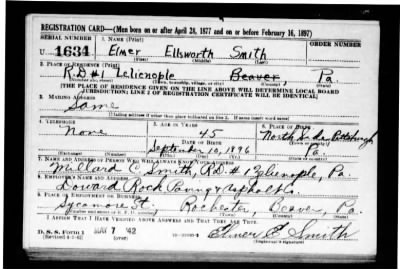 REGISTRATION CARD—(Men born on or after April 28, 1877 and on or before February 16, 1897)
SERIAL NUMBER 1. NAME (Print) ORDER NUMBER
U 1634 Elmer Ellsworth Smith
(First) (Middle) (Last)
2. PLACE OF RESIDENCE (Print)
R.D #1 Zelienople Beaver, Pa.
(Number and street) (Town, township, village, or city) (County) (State)
[THE PLACE OF RESIDENCE GIVEN ON THE LINE ABOVE WILL DETERMINE LOCAL BOARD
JURISDICTION; LINE 2 OF REGISTRATION CERTIFICATE WILL BE IDENTICAL]
3. MAILING ADDRESS
Same
[Mailing address if other than place indicated on line 2. If same insert word same]
4. TELEPHONE 5. AGE IN YEARS 6. PLACE OF BIRTH
None 45 North Side Pittsburgh
DATE OF BIRTH
September 10, 1896 Pa.
7. NAME AND ADDRESS OF PERSON WHO WILL ALWAYS KNOW YOUR ADDRESS
Millard C Smith, R.D. #1 Zelienople, Pa.
8. EMPLOYER'S NAME AND ADDRESS
Rock Paving & Asphalt Co.
9. PLACE OF EMPLOYMENT OR BUSINESS
Sycamore St. Rochester, Beaver, Pa.
(Number and street or R. F. D. number) (Town) (County) (State)
I AFFIRM THAT I HAVE VERIFIED ABOVE ANSWERS AND THAT THEY ARE TRUE.
D. S. S. Form 1 MAY 7 '42 Elmer E Smith
(over) (Registrant's signature)